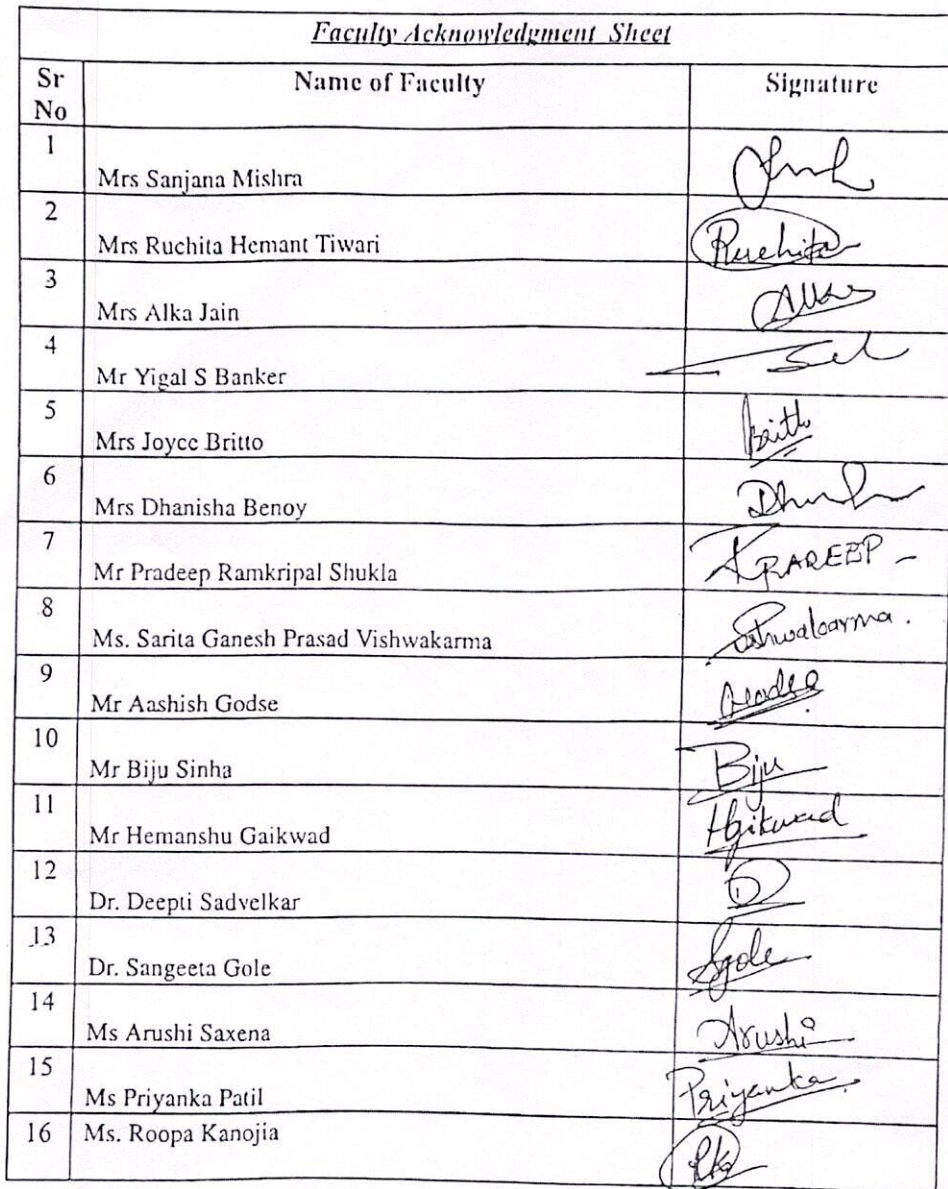 Faculty Acknowledgment Sheet
Sr No Name of Faculty Signature
1 Mrs Sanjana Mishra
2 Mrs Ruchita Hemant Tiwari Ruchita
3 Mrs Alka Jain Alka
4 Mr Yigal S Banker
5 Mrs Joyce Britto Britto
6 Mrs Dhanisha Benoy
7 Mr Pradeep Ramkripal Shukla PRADEEP
8 Ms. Sarita Ganesh Prasad Vishwakarma Vishwakarma.
9 Mr Aashish Godse
10 Mr Biju Sinha Biju
11 Mr Hemanshu Gaikwad
12 Dr. Deepti Sadvelkar D
13 Dr. Sangeeta Gole Sgole
14 Ms Arushi Saxena Arushi
15 Ms Priyanka Patil Priyanka
16 Ms. Roopa Kanojia